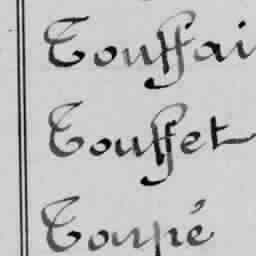 Touffai
Touffet
Toupé